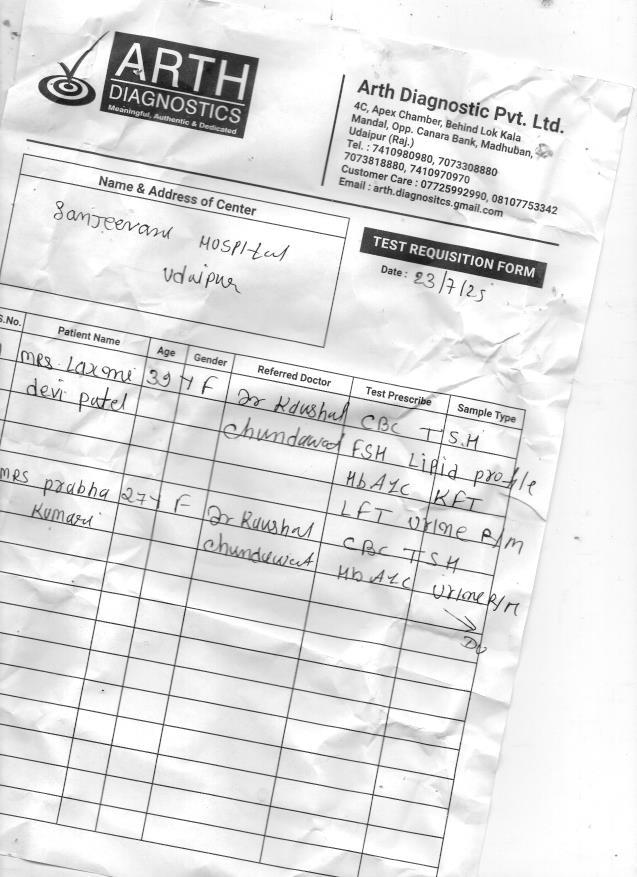 ARTH
DIAGNOSTICS
Meaningful, Authentic & Dedicated
Arth Diagnostic Pvt. Ltd.
4C, Apex Chamber, Behind Lok Kala
Mandal, Opp. Canara Bank, Madhuban,
Udaipur (Raj.)
Tel. : 7410980980, 7073308880
7073818880, 7410970970
Customer Care : 07725992990, 08107753342
Email : arth.diagnositcs.gmail.com
Name & Address of Center
Sanjeevani Hospital
Udaipur
TEST REQUISITION FORM
Date : 23/7/25
S.No. Patient Name Age Gender Referred Doctor Test Prescribe Sample Type
1 MRS. Laxmi 39 Y F Dr Kaushal CBC TSH
devi patel Chundawat FSH Lipid profile
HbA1C KFT
LFT Urine R/M
MRS prabha 27 Y F Dr Kaushal CBC TSH
Kumari Chundawat HbA1C Urine R/M